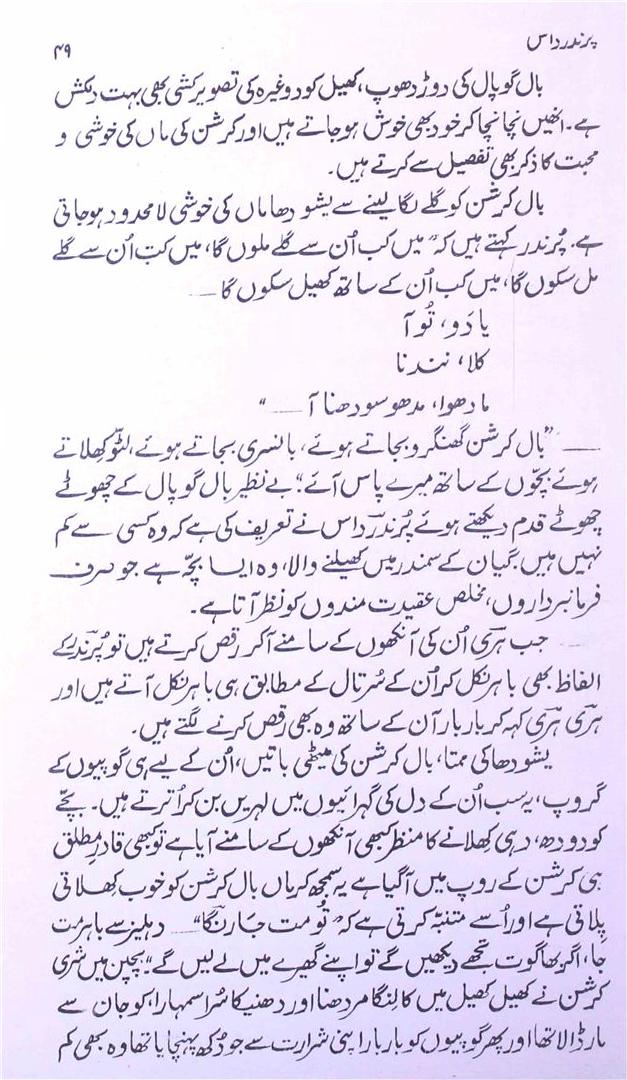 پرندرداس ۴۹
بال گوپال کی دوڑ دھوپ، کھیل کود وغیرہ کی تصویر کشی بھی بہت دلکش
ہے۔ انھیں نچا نچا کر خود بھی خوش ہو جاتے ہیں اور کرشن کی ماں کی خوشی و
محبت کا ذکر بھی تفصیل سے کرتے ہیں۔
بال کرشن کو گلے لگا لینے سے یشودھا ماں کی خوشی لامحدود ہو جاتی
ہے۔ پُرندر کہتے ہیں کہ "میں کب اُن سے گلے ملوں گا، میں کب اُن سے گلے
مل سکوں گا، میں کب اُن کے ساتھ کھیل سکوں گا ـــ
یا دَو، تُو آ
کلا، نندنا
مادھوا، مدھوسودھنا آ ـــ "
ـــ "بال کرشن گھنگرو بجاتے ہوئے، بانسری بجاتے ہوئے، لٹّو کھلاتے
ہوئے بچّوں کے ساتھ میرے پاس آئے" بے نظیر بال گوپال کے چھوٹے
چھوٹے قدم دیکھتے ہوئے پُرندرداس نے تعریف کی ہے کہ وہ کسی سے کم
نہیں ہیں۔ گیان کے سمندر میں کھیلنے والا، وہ ایسا بچّہ ہے جو صرف
فرمانبرداروں، مخلص عقیدت مندوں کو نظر آتا ہے۔
جب ہری اُن کی آنکھوں کے سامنے آ کر رقص کرتے ہیں تو پُرندر کے
الفاظ بھی باہر نکل کر اُن کے سُر تال کے مطابق ہی باہر نکل آتے ہیں اور
ہری ہری کہہ کر بار بار آن کے ساتھ وہ بھی رقص کرنے لگتے ہیں۔
یشودھا کی ممتا، بال کرشن کی میٹھی باتیں، اُن کے لیے ہی گوپیوں کے
گروپ، یہ سب اُن کے دل کی گہرائیوں میں لہریں بن کر اُترتے ہیں۔ بچّے
کو دودھ، دہی کھلانے کا منظر کبھی آنکھوں کے سامنے آیا ہے تو کبھی قادرِ مطلق
ہی کرشن کے روپ میں آ گیا ہے یہ سمجھ کر ماں بال کرشن کو خوب کھلاتی
پلاتی ہے اور اُسے متنبّہ کرتی ہے کہ "تُو مت جا رنگا" ـــ دہلیز سے باہر مت
جا، اگر بھاگوت تجھے دیکھیں گے تو اپنے گھیرے میں لے لیں گے"۔ بچپن میں شری
کرشن نے کھیل کھیل میں کالِنگا مردھنا اور دھنیکا سُرا سمہارا، کو جان سے
مار ڈالا تھا اور پھر گوپیوں کو بار بار اپنی شرارت سے جو دُکھ پہنچایا تھا وہ بھی کم